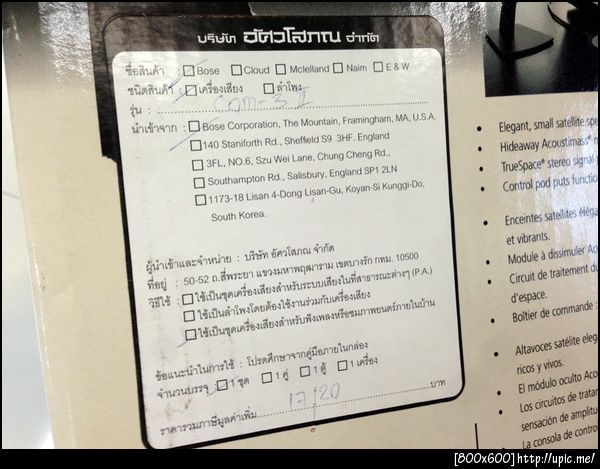 บริษัท อัศวโสภณ จำกัด
ชื่อสินค้า : Bose Cloud Mclelland Naim E & W
ชนิดสินค้า : เครื่องเสียง ลำโพง
รุ่น : Com-3 II
นำเข้าจาก : Bose Corporation, The Mountain, Framingham, MA, U.S.A.
140 Staniforth Rd., Sheffield S9 3HF. England
3FL, NO.6, Szu Wei Lane, Chung Cheng Rd.,
Southampton Rd., Salisbury, England SP1 2LN
1173-18 Lisan 4-Dong Lisan-Gu, Koyan-Si Kunggi-Do,
South Korea.
ผู้นำเข้าและจำหน่าย : บริษัท อัศวโสภณ จำกัด
ที่อยู่ : 50-52 ถ.สี่พระยา แขวงมหาพฤฒาราม เขตบางรัก กทม. 10500
วิธีใช้ : ใช้เป็นชุดเครื่องเสียงสำหรับระบบเสียงในที่สาธารณะต่างๆ (P.A.)
ใช้เป็นลำโพงโดยต้องใช้งานร่วมกับเครื่องเสียง
ใช้เป็นชุดเครื่องเสียงสำหรับฟังเพลงหรือชมภาพยนตร์ภายในบ้าน
ข้อแนะนำในการใช้ : โปรดศึกษาจากคู่มือภายในกล่อง
จำนวนบรรจุ : 1 ชุด 1 คู่ 1 ตู้ 1 เครื่อง
ราคารวมภาษีมูลค่าเพิ่ม 17,120 บาท
• Elegant, small satellite spe
• Hideaway Acoustimass® m
• TrueSpace® stereo signal
• Control pod puts functio
• Enceintes satellites éléga
et vibrants.
• Module à dissimuler Ac
• Circuit de traitement du
d'espace.
• Boîtier de commande :
• Altavoces satélite eleg
ricos y vivos.
• El módulo oculto Aco
• Los circuitos de tratar
sensación de amplitu
• La consola de contro
[800x600]http://upic.me/